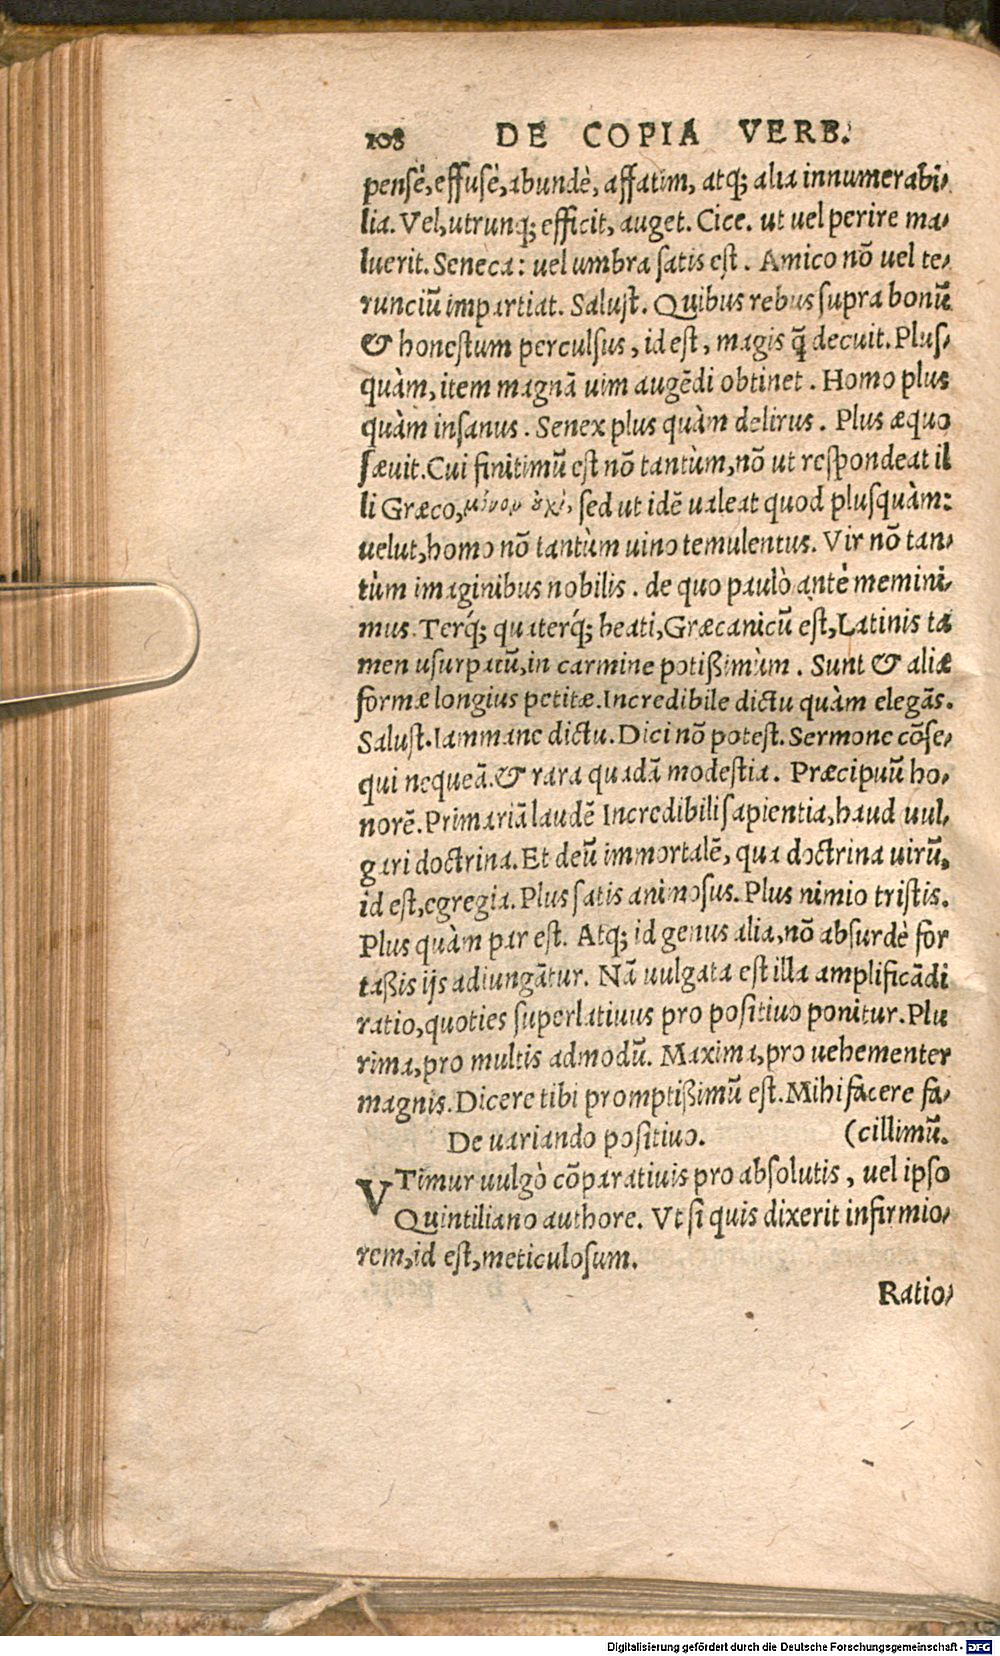 108 DE COPIA VERB.
pensè, effusè, abundè, affatim, atq; alia innumerabi-
lia. Vel, utrunq; efficit, auget. Cice. ut uel perire ma-
luerit. Seneca: uel umbra satis est. Amico nō uel te-
runciū impartiat. Salust. Quibus rebus supra bonū
& honestum perculsus, id est, magis q̃ decuit. Plus-
quàm, item magnā uim augēdi obtinet. Homo plus
quàm insanus. Senex plus quàm delirus. Plus æquo
sæuit. Cui finitimū est nō tantùm, nō ut respondeat il
li Græco, μόνον ȣ̓χὶ, sed ut idē ualeat quod plusquàm:
uelut, homo nō tantùm uino temulentus. Vir nō tan-
tùm imaginibus nobilis. de quo paulò antè memini-
mus. Terq́; quaterq́; beati, Græcanicū est, Latinis ta
men usurpatū, in carmine potißimùm. Sunt & aliæ
formæ longius petitæ. Incredibile dictu quàm elegãs.
Salust. Iammane dictu. Dici nō potest. Sermone cōse-
qui nequeā. & rara quadā modestia. Præcipuū ho-
norē. Primariā laudē Incredibili sapientia, haud uul-
gari doctrina. Et deū immortalē, qua doctrina uirū,
id est, egregia. Plus satis animosus. Plus nimio tristis.
Plus quàm par est. Atq; id genus alia, nō absurdè for
taßis ijs adiungātur. Nā uulgata est illa amplificādi
ratio, quoties superlatiuus pro positiuo ponitur. Plu
rima, pro multis admodū. Maxima, pro uehementer
magnis. Dicere tibi promptißimū est. Mihi facere fa-
De uariando positiuo. (cillimū.
VTimur uulgò cōparatiuis pro absolutis, uel ipso
Quintiliano authore. Vt si quis dixerit infirmio-
rem, id est, meticulosum.
Ratio-
Digitalisierung gefördert durch die Deutsche Forschungsgemeinschaft - DFG